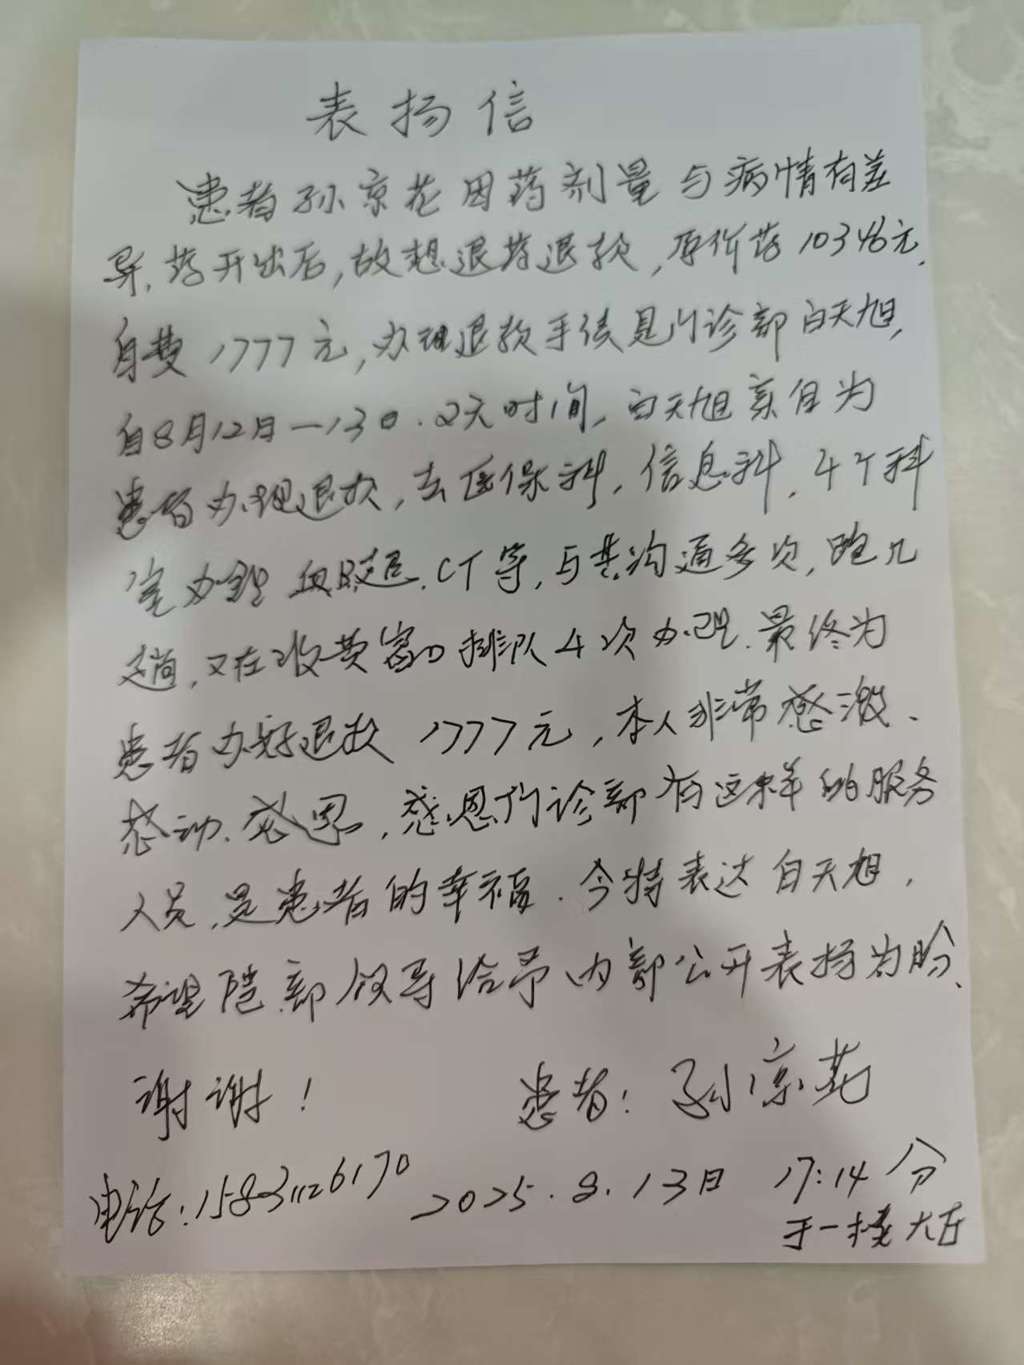 表扬信
患者孙京花因药剂量与病情有差
异,药开出后,故想退药退款,原价药10346元,
自费1777元,办理退款手续是门诊部白天旭,
自8月12日—13日.2天时间,白天旭亲自为
患者办理退款,去医保科,信息科,4个科
室办理 血 CT等,与其沟通多次,跑几
趟,又在收费窗口排队4次办理.最终为
患者办好退款1777元,本人非常感激、
感动、感恩,感恩门诊部有这样的服务
人员,是患者的幸福.今特表达白天旭,
希望 部领导给予内部公开表扬为盼、
谢谢!
患者:孙京花
电话:15831126170
2025.8.13日 17:14分
于一楼大厅